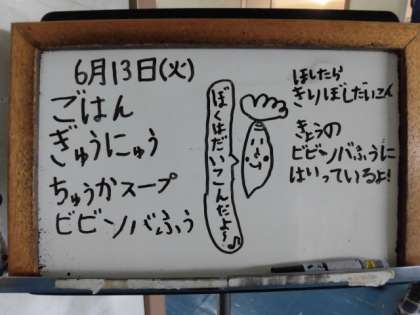 6月13日(火)
ごはん
ぎゅうにゅう
ちゅうかスープ
ビビンバふう
ぼくはだいこんだよ〜♪
ほしたら
きりぼしだいこん
きょうの
ビビンバふうに
はいっているよ!